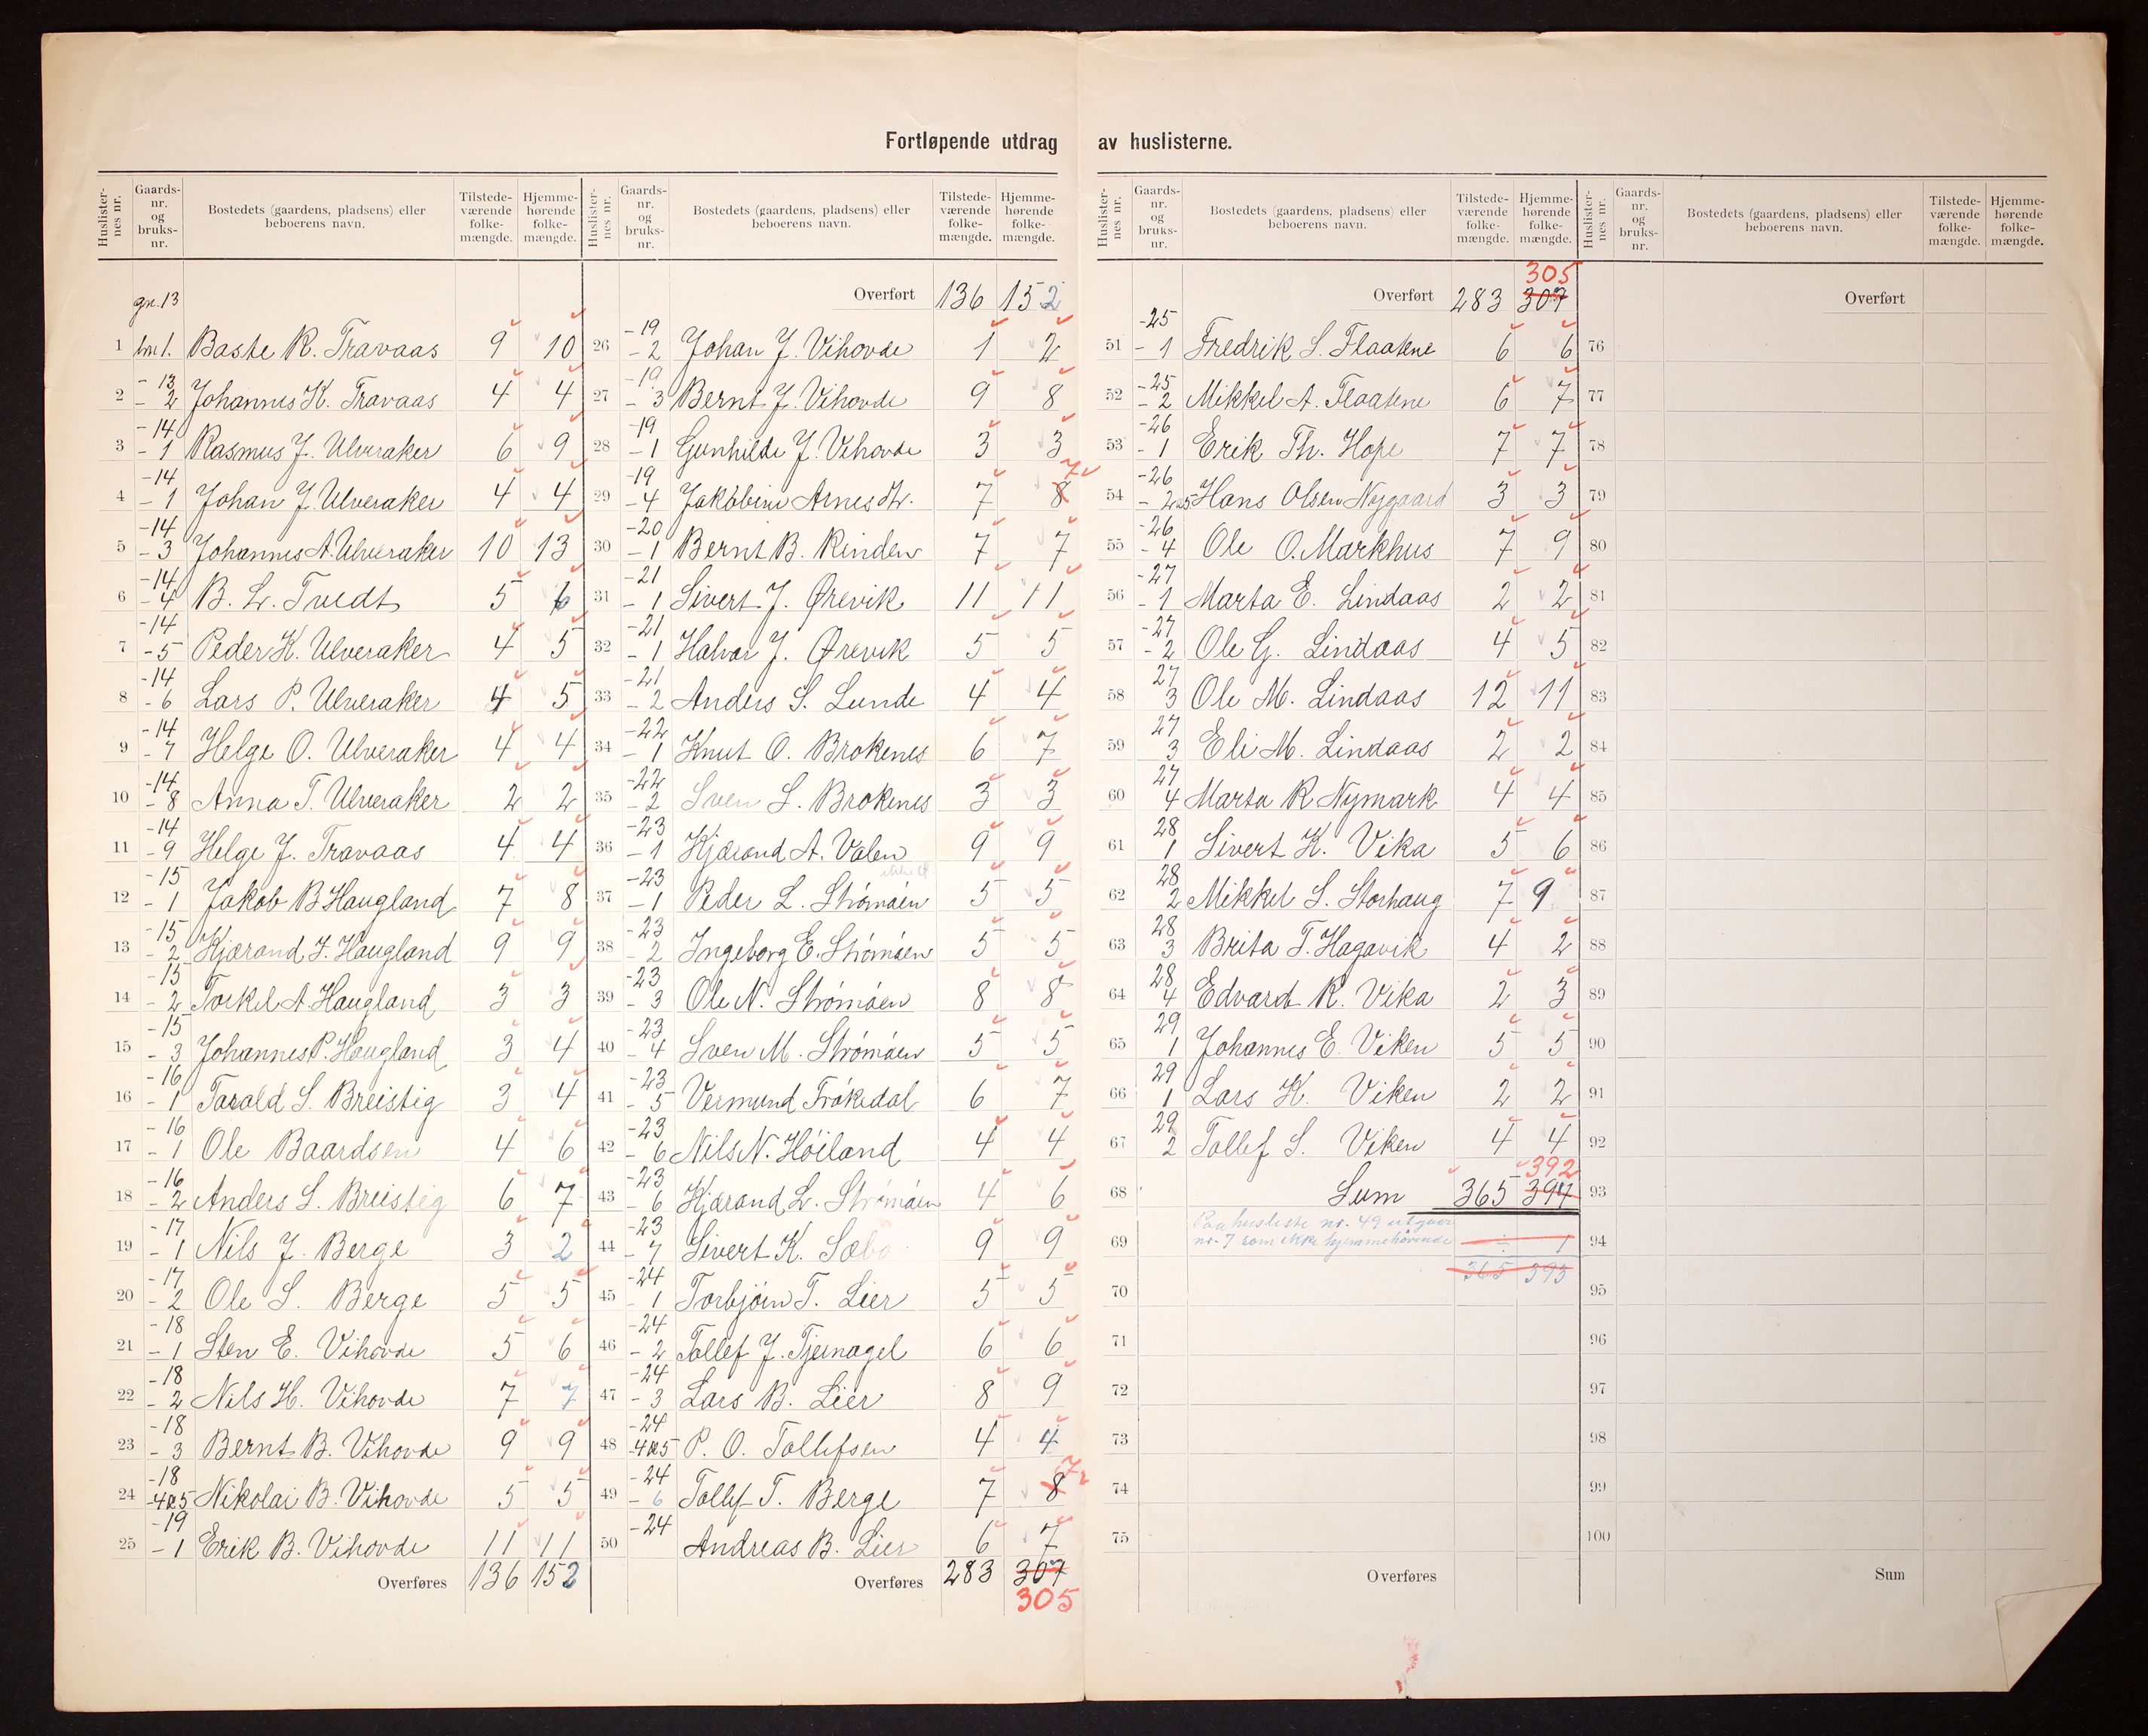 Fortløpende utdrag av huslisterne.
Huslister-nes nr. Gaards-nr. og bruks-nr. Bostedets (gaardens, pladsens) eller beboerens navn. Tilstede-værende folke-mængde. Hjemme-hørende folke-mængde.
gn. 13
1 bn 1. Baste R. Travaas 9 10
2 - 13 - 2 Johannes K. Travaas 4 4
3 - 14 - 1 Rasmus J. Ulveraker 6 9
4 - 14 - 1 Johan J. Ulveraker 4 4
5 - 14 - 3 Johannes A. Ulveraker 10 13
6 - 14 - 4 B. L. Tvedt 5 6
7 - 14 - 5 Peder K. Ulveraker 4 5
8 - 14 - 6 Lars P. Ulveraker 4 5
9 - 14 - 7 Helge O. Ulveraker 4 4
10 - 14 - 8 Anna T. Ulveraker 2 2
11 - 14 - 9 Helge J. Travaas 4 4
12 - 15 - 1 Jakob B Haugland 7 8
13 - 15 - 2 Kjærand J. Haugland 9 9
14 - 15 - 2 Torkel A Haugland 3 3
15 - 15 - 3 Johannes P. Haugland 3 4
16 - 16 - 1 Torald S. Breistig 3 4
17 - 16 - 1 Ole Baardsen 4 6
18 - 16 - 2 Anders S. Breistig 6 7
19 - 17 - 1 Nils J. Berge 3 2
20 - 17 - 2 Ole S. Berge 5 5
21 - 18 - 1 Sten E. Vihovde 5 6
22 - 18 - 2 Nils H. Vihovde 7 7
23 - 18 - 3 Bernt B. Vihovde 9 9
24 - 18 - 4&5 Nikolai B. Vihovde 5 5
25 - 19 - 1 Erik B. Vihovde 11 11
Overføres 136 152
Huslister-nes nr. Gaards-nr. og bruks-nr. Bostedets (gaardens, pladsens) eller beboerens navn. Tilstede-værende folke-mængde. Hjemme-hørende folke-mængde.
Overført 136 152
26 - 19 - 2 Johan J. Vihovde 1 2
27 - 19 - 3 Bernt J. Vihovde 9 8
28 - 19 - 1 Gunhilde J. Vihovde 3 3
29 - 19 - 4 Jakobine Arnesdtr. 7 8 7
30 - 20 - 1 Bernt B. Rinden 7 7
31 - 21 - 1 Sivert J. Ørevik 11 11
32 - 21 - 1 Halvor J. Ørevik 5 5
33 - 21 - 2 Anders S. Lunde 4 4
34 - 22 - 1 Knut O. Brokenes 6 7
35 - 22 - 2 Sven S. Brokenes 3 3
36 - 23 - 1 Kjærand A. Valen 9 9
37 - 23 - 1 Peder L. Strömöen 5 5
38 - 23 - 2 Ingeborg E. Strömöen 5 5
39 - 23 - 3 Ole N. Strömöen 8 8
40 - 23 - 4 Sven M. Strömöen 5 5
41 - 23 - 5 Vermund Trökedal 6 7
42 - 23 - 6 Nils N. Höiland 4 4
43 - 23 - 6 Kjærand L. Strömöen 4 6
44 - 23 - 7 Sivert K. Sæbö 9 9
45 - 24 - 1 Torbjörn T. Lier 5 5
46 - 24 - 2 Tollef J. Tjernagel 6 6
47 - 24 - 3 Lars B. Lier 8 9
48 - 24 - 4&5 P. O. Tollefsen 4 4
49 - 24 - 6 Tollef T. Berge 7 8 7
50 - 24 Andreas B. Lier 6 7
Overføres 283 307
305
Huslister-nes nr. Gaards-nr. og bruks-nr. Bostedets (gaardens, pladsens) eller beboerens navn. Tilstede-værende folke-mængde. Hjemme-hørende folke-mængde.
305
Overført 283 307
51 - 25 - 1 Fredrik S. Flaatene 6 6
52 - 25 - 2 Mikkel A. Flaatene 6 7
53 - 26 - 1 Erik Th. Hope 7 7
54 - 26 - 2&5 Hans Olsen Nygaard 3 3
55 - 26 - 4 Ole O. Markhus 7 9
56 - 27 - 1 Marta E. Lindaas 2 2
57 - 27 - 2 Ole G. Lindaas 4 5
58 27 3 Ole M. Lindaas 12 11
59 27 3 Eli M. Lindaas 2 2
60 27 4 Marta R Nymark 4 4
61 28 1 Sivert K. Vika 5 6
62 28 2 Mikkel S. Storhaug 7 9
63 28 3 Brita T. Hagavik 4 2
64 28 4 Edvard R. Vika 2 3
65 29 1 Johannes E. Viken 5 5
66 29 1 Lars K. Viken 2 2
67 29 2 Tollef S. Viken 4 4
392
68 Sum 365 394
Paa husliste nr. 49 utgaar
69 nr. 7 som ikke hjemmehörende ÷ 1
365 393
70
71
72
73
74
75
Overføres
Huslister-nes nr. Gaards-nr. og bruks-nr. Bostedets (gaardens, pladsens) eller beboerens navn. Tilstede-værende folke-mængde. Hjemme-hørende folke-mængde.
Overført
76
77
78
79
80
81
82
83
84
85
86
87
88
89
90
91
92
93
94
95
96
97
98
99
100
Sum